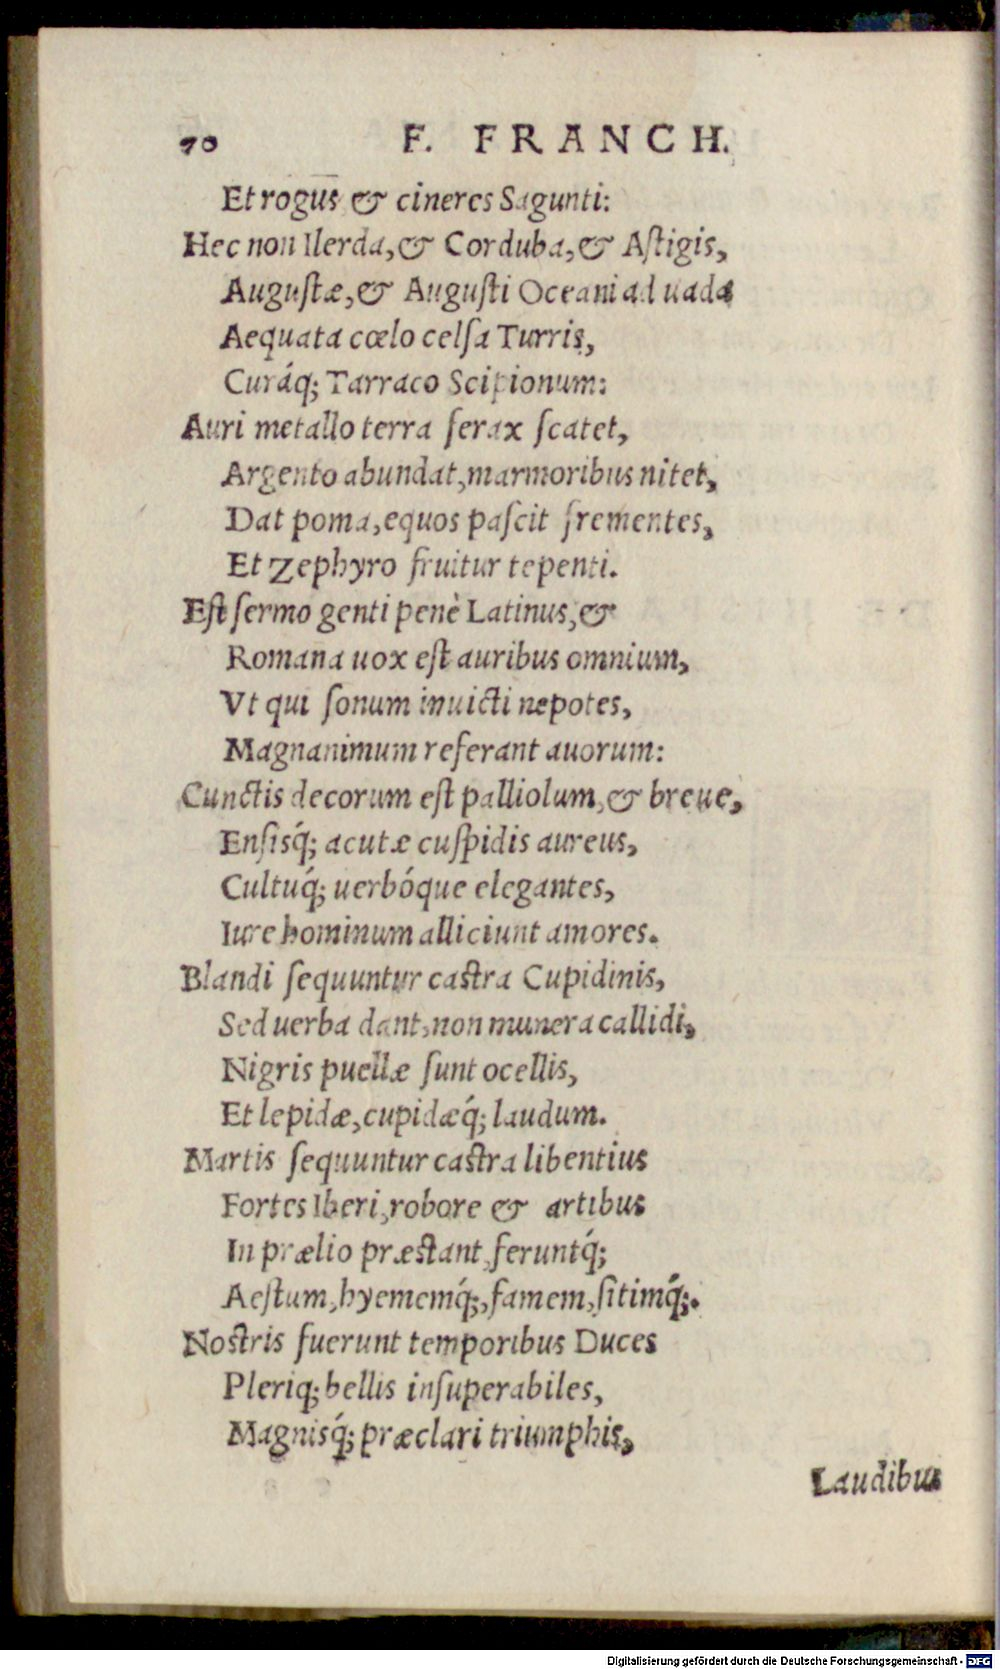 70 F. FRANCH.
Et rogus & cineres Sagunti:
Hec non Ilerda, & Corduba, & Aſtigis,
Auguſtæ, & Auguſti Oceani ad uada
Aequata cœlo celſa Turris,
Curáq; Tarraco Scipionum:
Auri metallo terra ferax ſcatet,
Argento abundat, marmoribus nitet,
Dat poma, equos paſcit frementes,
Et Zephyro fruitur tepenti.
Eſt ſermo genti penè Latinus, &
Romana uox eſt auribus omnium,
Vt qui ſonum inuicti nepotes,
Magnanimum referant auorum:
Cunctis decorum eſt palliolum, & breue,
Enſisq́; acutæ cuſpidis aureus,
Cultuq́; uerbóque elegantes,
Iure hominum alliciunt amores.
Blandi ſequuntur caſtra Cupidinis,
Sed uerba dant, non munera callidi,
Nigris puellæ ſunt ocellis,
Et lepidæ, cupidæq́; laudum.
Martis ſequuntur caſtra libentius
Fortes Iberi, robore & artibus
In prælio præſtant, feruntq́;
Aeſtum, hyememq́;, famem, ſitimq́;.
Noſtris fuerunt temporibus Duces
Pleriq; bellis inſuperabiles,
Magnisq́; præclari triumphis,
Laudibus
Digitalisierung gefördert durch die Deutsche Forschungsgemeinschaft - DFG